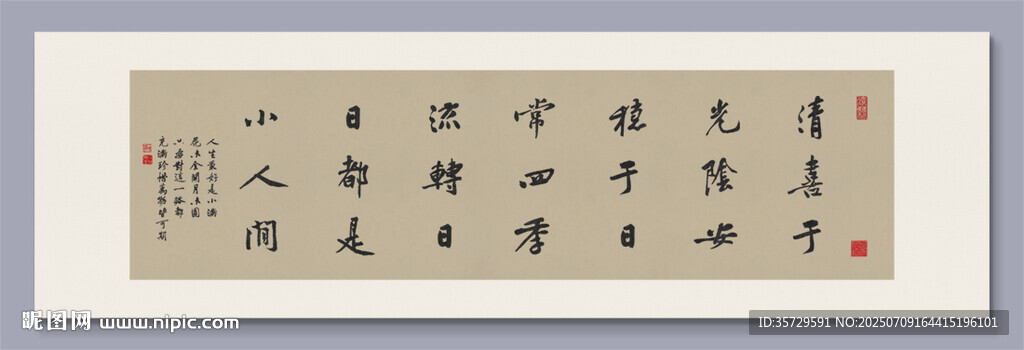 清喜于
光陰安
穩于日
常四季
流轉日
日都是
小人間
人生最好是小滿
花未全開月未圓
只需對這一路都
充滿珍惜萬物皆可期
昵图网 www.nipic.com
ID:35729591 NO:20250709164415196101